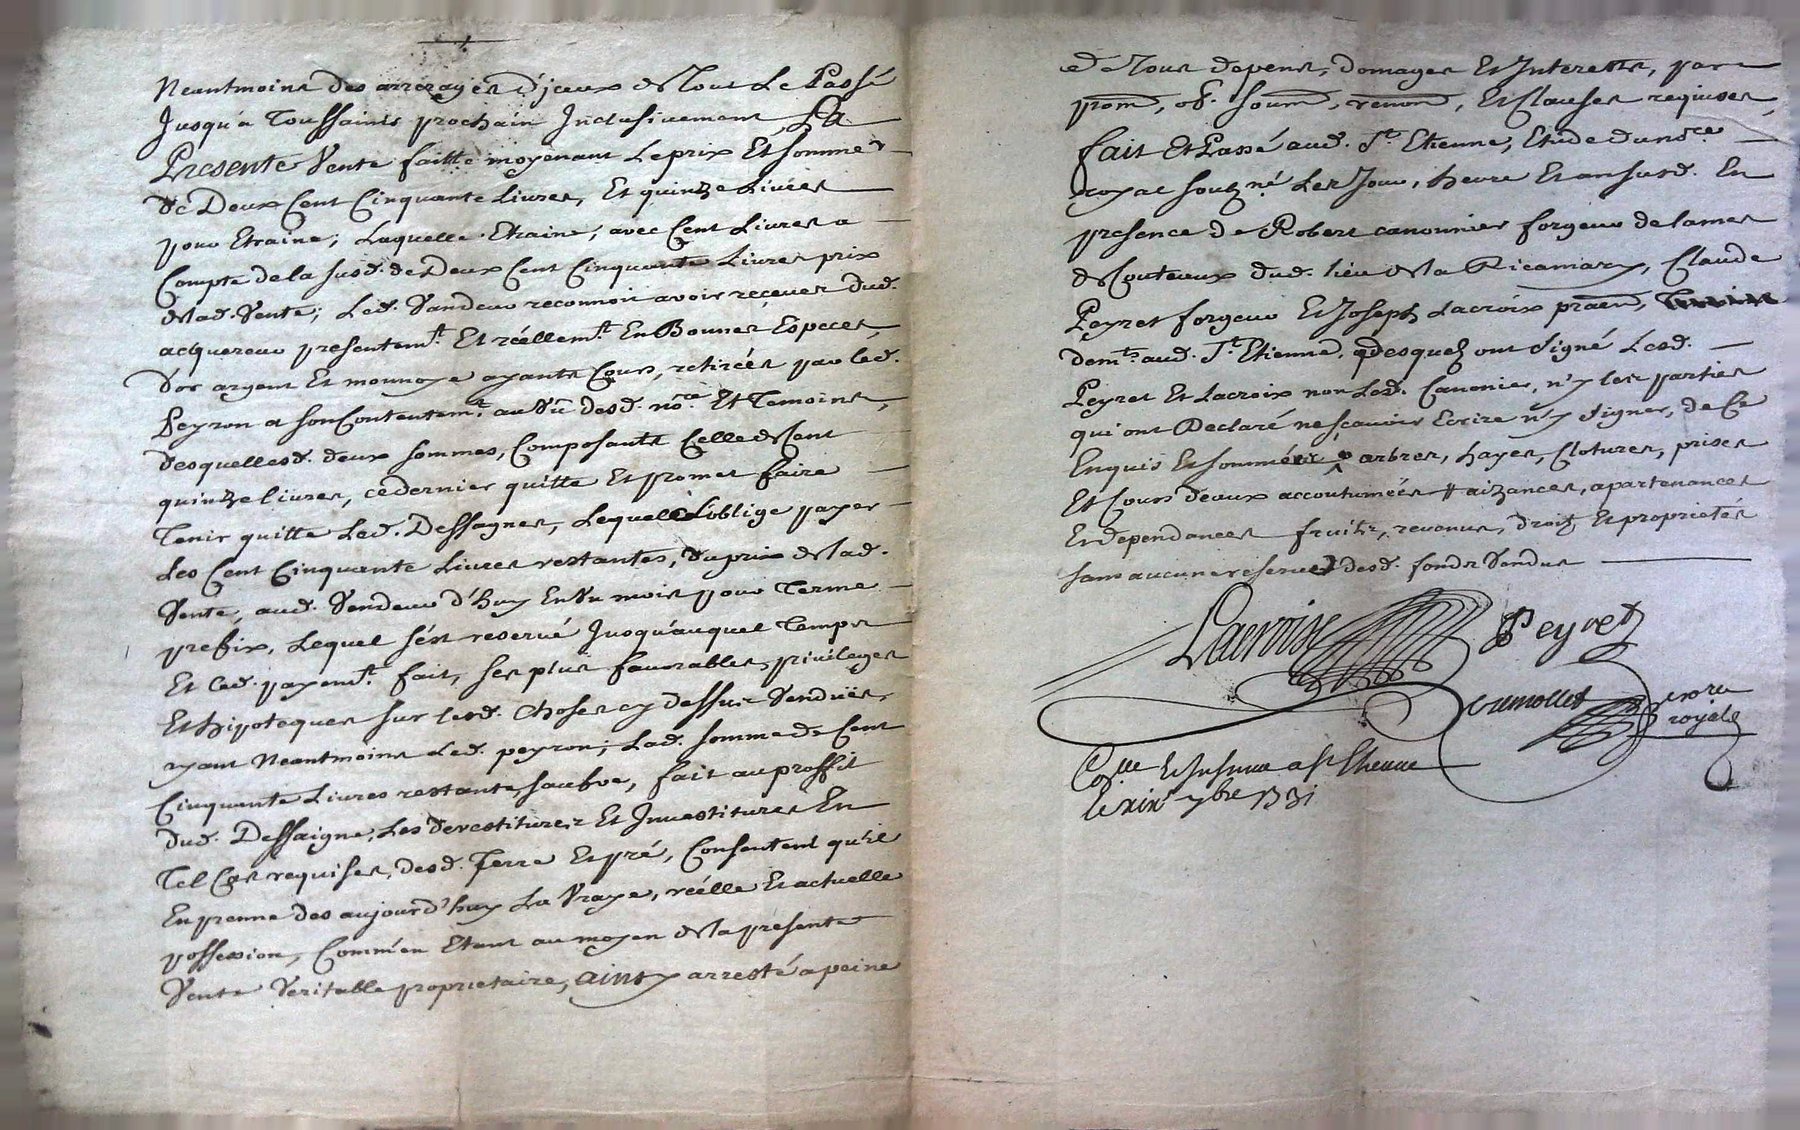 Neantmoins des arrerages d'jceux de Tout Le Passé
Jusqu'a Toussaints prochain Inclusivement La
Presente Vente faitte moyenant Le prix Et somme
de Deux Cent Cinquante Livres, Et quinze Livres
pour Etraine; Laquelle Etraine, avec Cent Livres a
Compte de la susd. de Deux Cent Cinquante Livres prix
de lad. Vente; Led. Vendeur reconnoit avoir reçeues dud.
acquereur presentemt. Et réellemt. En Bonnes Especes
d'or argent Et monnoye ayants Cours, retirées par led.
Peyron a son Contentemt. au Vû desd. nore. Et Temoins,
desquelles d. deux sommes, Composants Celle de Cent
quinze livres, ce dernier quitte Et promet faire
Tenir quitte Led. Dessagnes, Lequel s'oblige payer
Les Cent Cinquante Livres restantes, du prix de lad.
Vente, aud. Vendeur d'huy En Un mois pour Terme
prefix, Lequel s'est reservé Jusqu'auquel Temps
Et led. payemt. fait, ses plus favorables privileges
Et hipoteques sur lesd. choses cy dessus Vendues,
ayant Neantmoins Led. peyron; Lad. somme de Cent
Cinquante Livres restante, sauboe, fait au proffit
dud. Dessaigne, Les devestitures Et Investitures En
Tel Cas requises, desd. Terre Et pré, Consentent qu'il
En prenne des aujourd'huy La Vraye, réélle Et actuelle
possession, Comm'en Etant au moyen de la presente
Vente Veritable proprietaire, ainsy arresté a peine
de Tous depens, domages Et Interests, par
prom, ob. soum, renon, Et Clauses requises,
fait Et Passé aud. St. Etienne, Etude du nore
royal souzné. Les Jour, heure Et an susd. En
presence de Robert canonnier forgeur de lames
de Couteaux dud. lieu de la Ricamary, Claude
Peyret forgeur Et Joseph Lacroix praen,
demts. aud. St. Etienne, desquels ont signé Lesd.
Peyret Et Lacroix non Led. Canonier, n'y les parties
qui ont Declaré ne sçavoir Ecrire n'y signer, de Ce
Enquis Et sommés arbres, hayes, Clotures, prises
Et Cours d'eaux accoutumées # aizances, apartenances
Et dependances fruits, revenus, droits Et proprietés
sans aucune reserve desd. fonds Vendus
Lacroix Peyret
Cremollet nore
royal
Colle. Et Insinué a St Etienne
le xixe 7bre 1731